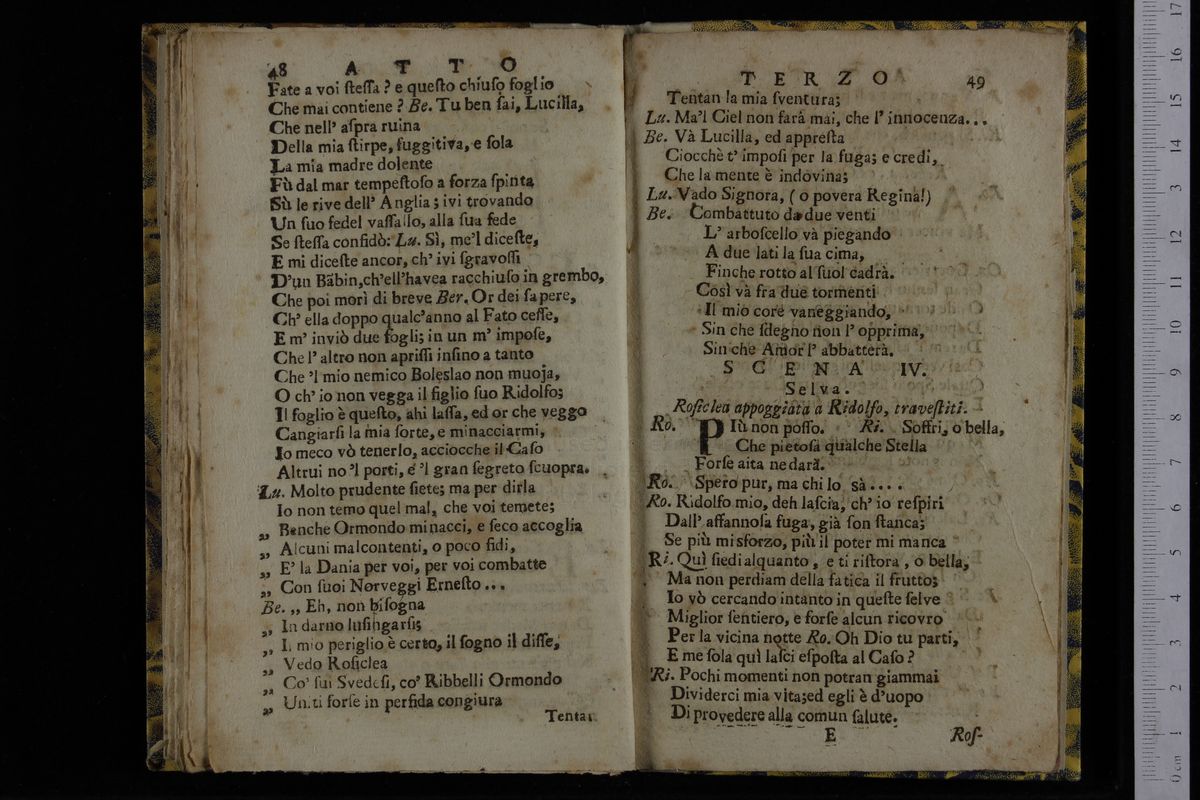 48 ATTO
Fate a voi ſteſſa? e queſto chiuſo foglio
Che mai contiene? Be. Tu ben ſai, Lucilla,
Che nell' aſpra ruina
Della mia ſtirpe, fuggitiva, e ſola
La mia madre dolente
Fù dal mar tempeſtoſo a forza ſpinta
Sù le rive dell' Anglia; ivi trovando
Un ſuo fedel vaſſallo, alla ſua fede
Se ſteſſa confidò: Lu. Sì, me'l diceſte,
E mi diceſte ancor, ch' ivi ſgravoſſi
D'un Bãbin,ch'ell'havea racchiuſo in grembo,
Che poi morì di breve Ber. Or dei ſapere,
Ch' ella doppo qualc'anno al Fato ceſſe,
E m' inviò due fogli; in un m' impoſe,
Che l' altro non apriſſi inſino a tanto
Che 'l mio nemico Boleslao non muoja,
O ch' io non vegga il figlio ſuo Ridolfo;
Il foglio è queſto, ahi laſſa, ed or che veggo
Cangiarſi la mia ſorte, e minacciarmi,
Io meco vò tenerlo, acciocche il Caſo
Altrui no 'l porti, e 'l gran ſegreto ſcuopra.
Lu. Molto prudente ſiete; ma per dirla
Io non temo quel mal, che voi temete;
„ Benche Ormondo minacci, e ſeco accoglia
„ Alcuni malcontenti, o poco fidi,
„ E' la Dania per voi, per voi combatte
„ Con ſuoi Norveggi Erneſto...
Be. „ Eh, non biſogna
„ In darno luſingarſi;
„ Il mio periglio è certo, il ſogno il diſſe,
„ Vedo Roſiclea
„ Co' ſui Svedeſi, co' Ribbelli Ormondo
„ Uniti forſe in perfida congiura
Tentan
TERZO 49
Tentan la mia ſventura;
Lu. Ma'l Ciel non farà mai, che l' innocenza...
Be. Và Lucilla, ed appreſta
Ciocchè t' impoſi per la fuga; e credi,
Che la mente è indovina;
Lu. Vado Signora, (o povera Regina!)
Be. Combattuto da due venti
L' arboſcello và piegando
A due lati la ſua cima,
Finche rotto al ſuol cadrà.
Così và fra due tormenti
Il mio core vaneggiando,
Sin che ſdegno non l' opprima,
Sin che Amor l' abbatterà.
SCENA IV.
Selva.
Roſiclea appoggiata a Ridolfo, traveſtiti.
Ro. PIù non poſſo. Ri. Soffri, o bella,
Che pietoſa qualche Stella
Forſe aita ne darà.
Ro. Spero pur, ma chi lo sà....
Ro. Ridolfo mio, deh laſcia, ch' io reſpiri
Dall' affannoſa fuga, già ſon ſtanca;
Se più mi sforzo, più il poter mi manca
Ri. Quì ſiedi alquanto, e ti riſtora, o bella,
Ma non perdiam della fatica il frutto;
Io vò cercando intanto in queſte ſelve
Miglior ſentiero, e forſe alcun ricovro
Per la vicina notte Ro. Oh Dio tu parti,
E me ſola quì laſci eſpoſta al Caſo?
Ri. Pochi momenti non potran giammai
Dividerci mia vita;ed egli è d'uopo
Di provedere alla comun ſalute.
E Roſ-
0 cm 1 2 3 4 5 6 7 8 9 10 11 12 13 14 15 16 17